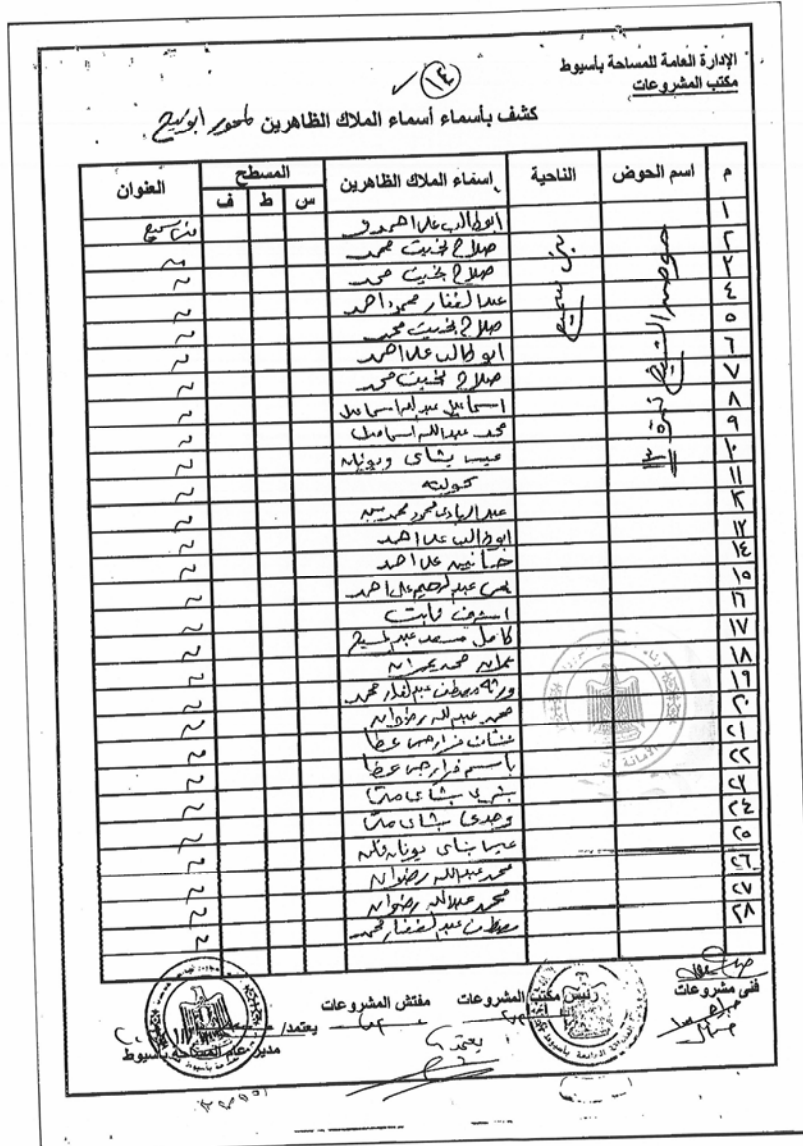 الإدارة العامة للمساحة بأسيوط
مكتب المشروعات
١٤
كشف بأسماء أسماء الملاك الظاهرين لمحور ابوتيج
م اسم الحوض الناحية اسماء الملاك الظاهرين المسطح العنوان
س ط ف
١ ابوطالب على احمد بنى سميع
٢ صلاح بخيت محمد "
٣ صلاح بخيت محمد "
٤ عبد الغفار محمود احمد "
٥ صلاح بخيت محمد "
٦ ابو طالب على احمد "
٧ صلاح بخيت محمد "
٨ اسماعيل عبد الله اسماعيل "
٩ محمد عبدالله اسماعيل "
١٠ بشاى "
١١ "
١٢ عبد الهادى محمود محمد "
١٣ ابوطالب على احمد "
١٤ على احمد "
١٥ عبد الرحيم على احمد "
١٦ اشرف ثابت "
١٧ كامل مسعد عبد المسيح "
١٨ محمد عمران "
١٩ ورثه مصطفى عبد الغفار محمد "
٢٠ محمد عبدالله رضوان "
٢١ عطا "
٢٢ باسم عطا "
٢٣ بشرى بشاى متى "
٢٤ وجدى بشاى متى "
٢٥ يونان "
٢٦ محمد عبدالله رضوان "
٢٧ محمد عبدالله رضوان "
٢٨ مصطفى عبد الغفار محمد "
بنى سميع
حوض الشيخ نمرة
فنى مشروعات
رئيس مكتب المشروعات
مفتش المشروعات
يعتمد/
مدير عام المساحة بأسيوط
يعتمد